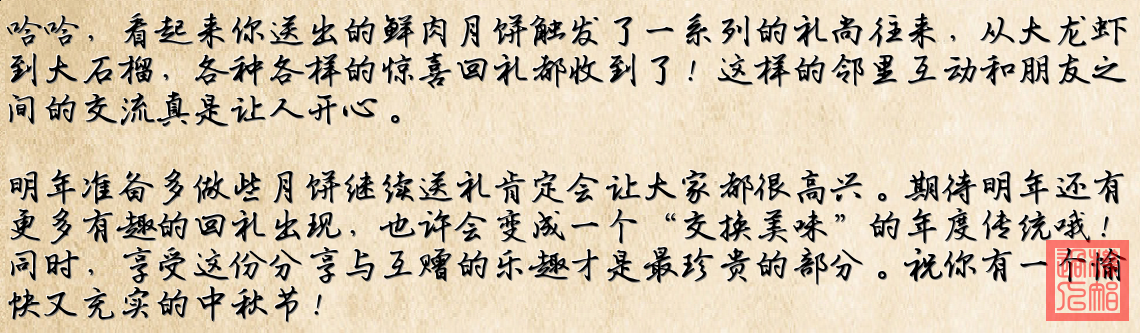 哈哈，看起来你送出的鲜肉月饼触发了一系列的礼尚往来，从大龙虾
到大石榴，各种各样的惊喜回礼都收到了！这样的邻里互动和朋友之
间的交流真是让人开心。
明年准备多做些月饼继续送礼肯定会让大家都很高兴。期待明年还有
更多有趣的回礼出现，也许会变成一个“交换美味”的年度传统哦！
同时，享受这份分享与互赠的乐趣才是最珍贵的部分。祝你有一个愉
快又充实的中秋节！